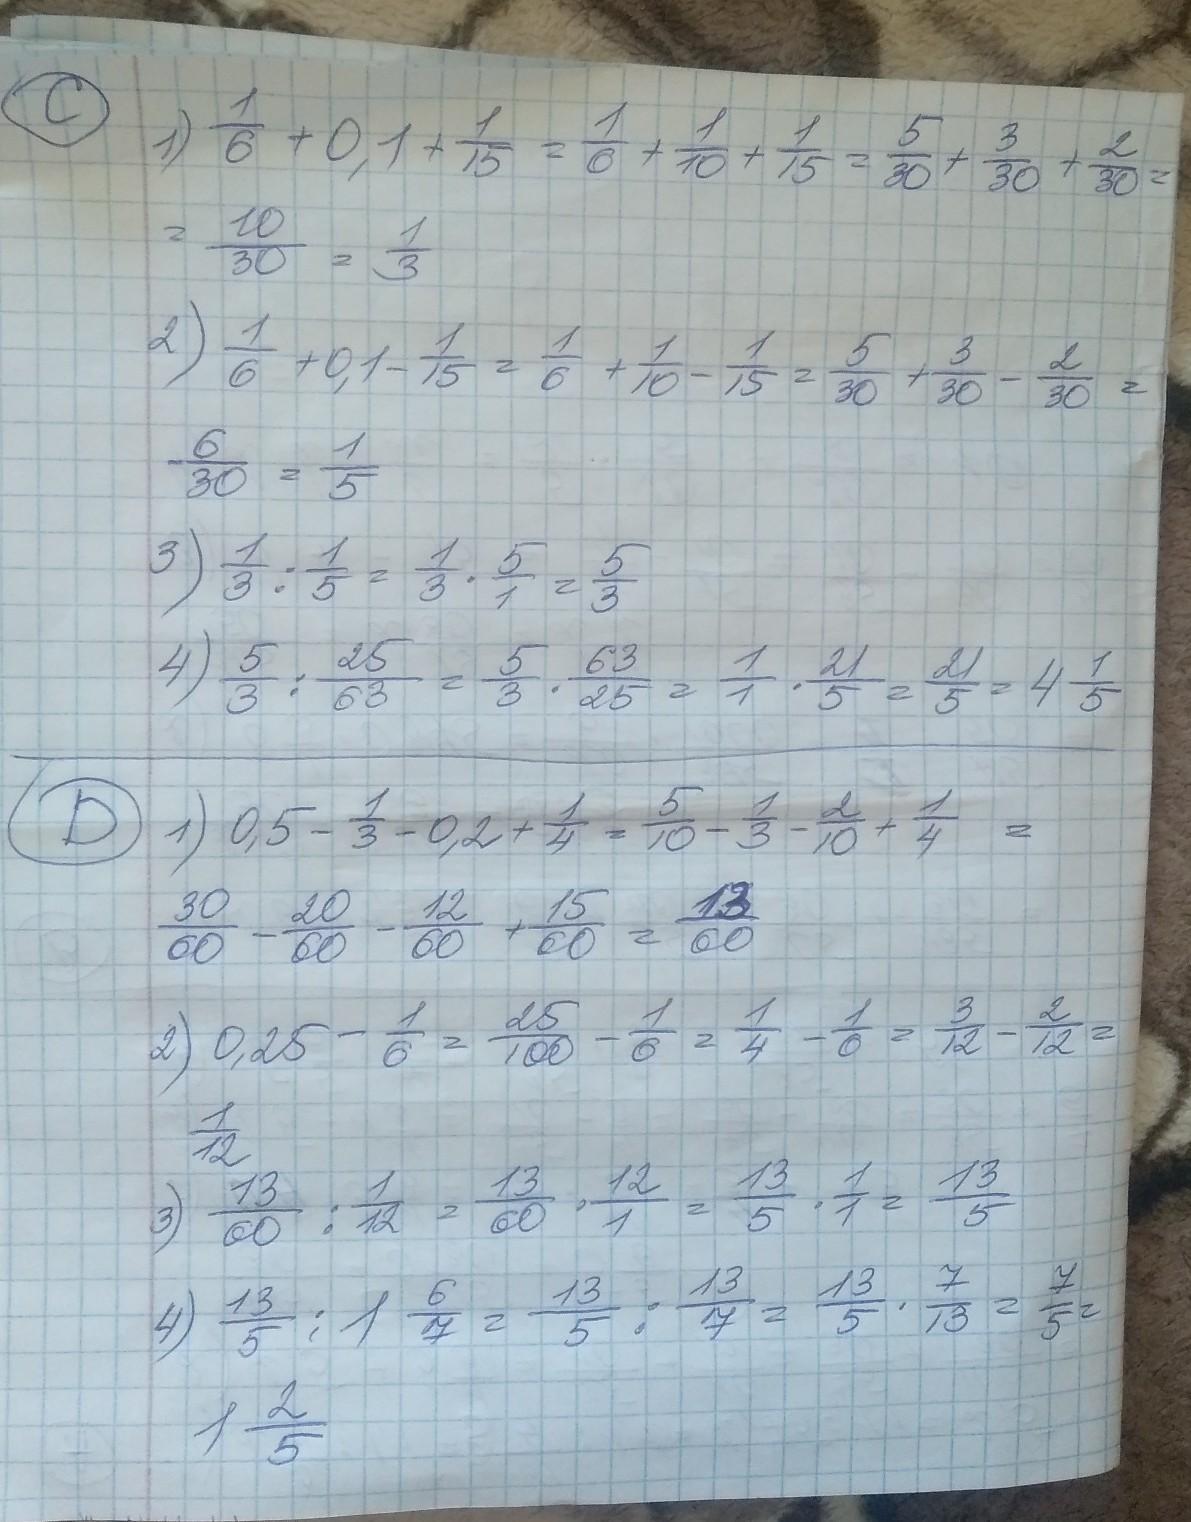 C
1) 1/6 + 0,1 + 1/15 = 1/6 + 1/10 + 1/15 = 5/30 + 3/30 + 2/30 =
= 10/30 = 1/3
2) 1/6 + 0,1 - 1/15 = 1/6 + 1/10 - 1/15 = 5/30 + 3/30 - 2/30 =
6/30 = 1/5
3) 1/3 : 1/5 = 1/3 · 5/1 = 5/3
4) 5/3 : 25/63 = 5/3 · 63/25 = 1/1 · 21/5 = 21/5 = 4 1/5
D
1) 0,5 - 1/3 - 0,2 + 1/4 = 5/10 - 1/3 - 2/10 + 1/4 =
30/60 - 20/60 - 12/60 + 15/60 = 13/60
2) 0,25 - 1/6 = 25/100 - 1/6 = 1/4 - 1/6 = 3/12 - 2/12 =
1/12
3) 13/60 : 1/12 = 13/60 · 12/1 = 13/5 · 1/1 = 13/5
4) 13/5 : 1 6/7 = 13/5 : 13/7 = 13/5 · 7/13 = 7/5 =
1 2/5